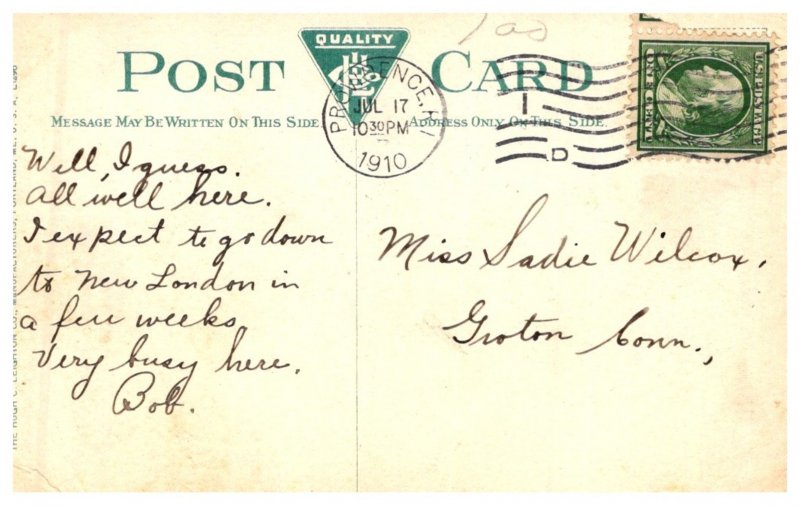 QUALITY
POST CARD
MESSAGE MAY BE WRITTEN ON THIS SIDE
ADDRESS ONLY ON THIS SIDE
PROVIDENCE, R.I.
JUL 17
10 30 PM
1910
D
U.S. POSTAGE
Well, I guess.
All well here.
I expect to go down
to New London in
a few weeks
Very busy here.
Bob.
Miss Sadie Wilcox,
Groton Conn.,
THE HUGH C. LEIGHTON CO., MANUFACTURERS, PORTLAND, ME., U.S.A.